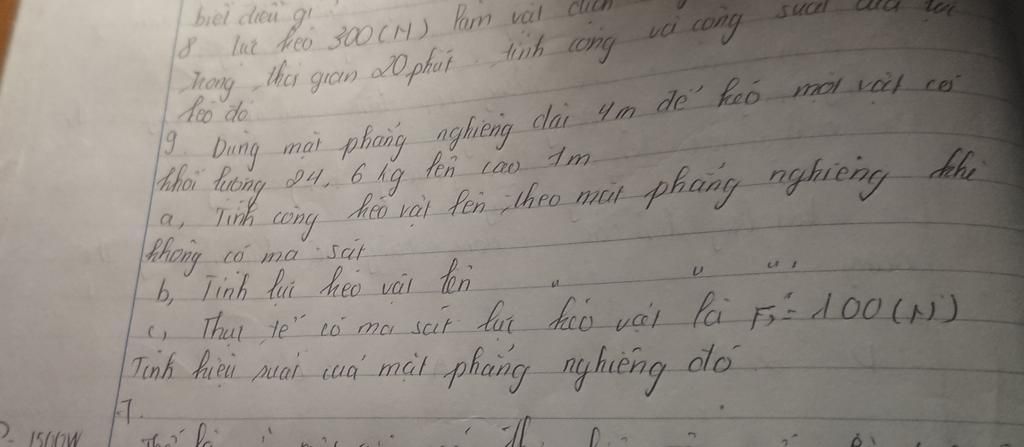 biết điều gì
8. lực kéo 300(N) làm vật dịch
trong thời gian 20 phút tính công và công suất của lực
kéo đó
9. Dùng mặt phẳng nghiêng dài 4m để kéo một vật có
khối lượng 24,6 kg lên cao 1m
a, Tính công kéo vật lên theo mặt phẳng nghiêng khi
không có ma sát
b, Tính lực kéo vật lên " " "
c, Thực tế có ma sát lực kéo vật là F = 100(N)
Tính hiệu suất của mặt phẳng nghiêng đó
7.
1500W